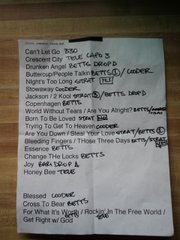 Can't Let Go 330
Crescent City TELE CAPO 3
Drunken Angel BETTS DROP D
Buttercup/People Talkin BETTS / COODER
Night's Too Long STRAT
Stowaway COODER
Jackson / 2 Kool STRAT / BETTS DROP D
Copenhagen BETTS
World Without Tears / Are You Alright? BETTS /
Born To Be Loved STRAT
Trying To Get To Heaven COODER
Are You Down / Steal Your Love STRAT / BETTS
Bleeding Fingers / Those Three Days BETTS / STRAT
Essence BETTS
Change THe Locks BETTS
Joy BARI DROP A
Honey Bee TELE
Blessed COODER
Cross To Bear BETTS
For What It's Worth / Rockin' In The Free World /
Get Right w/ God